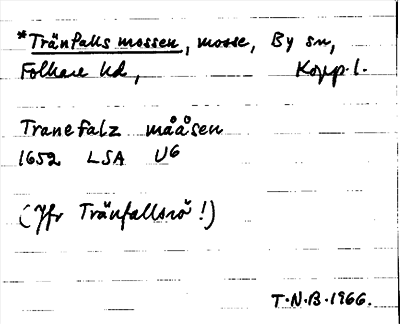 *Tränfalls mossen, mosse, By sn,
Folkare hd, Kopp. l.
Tranefalz mååsen
1652 LSA U6
(Jfr Tränfallsrö!)
T.N.B. 1966.